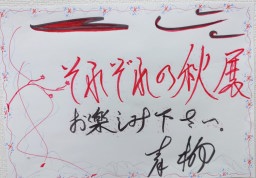 それぞれの秋展
お楽しみ下さい。